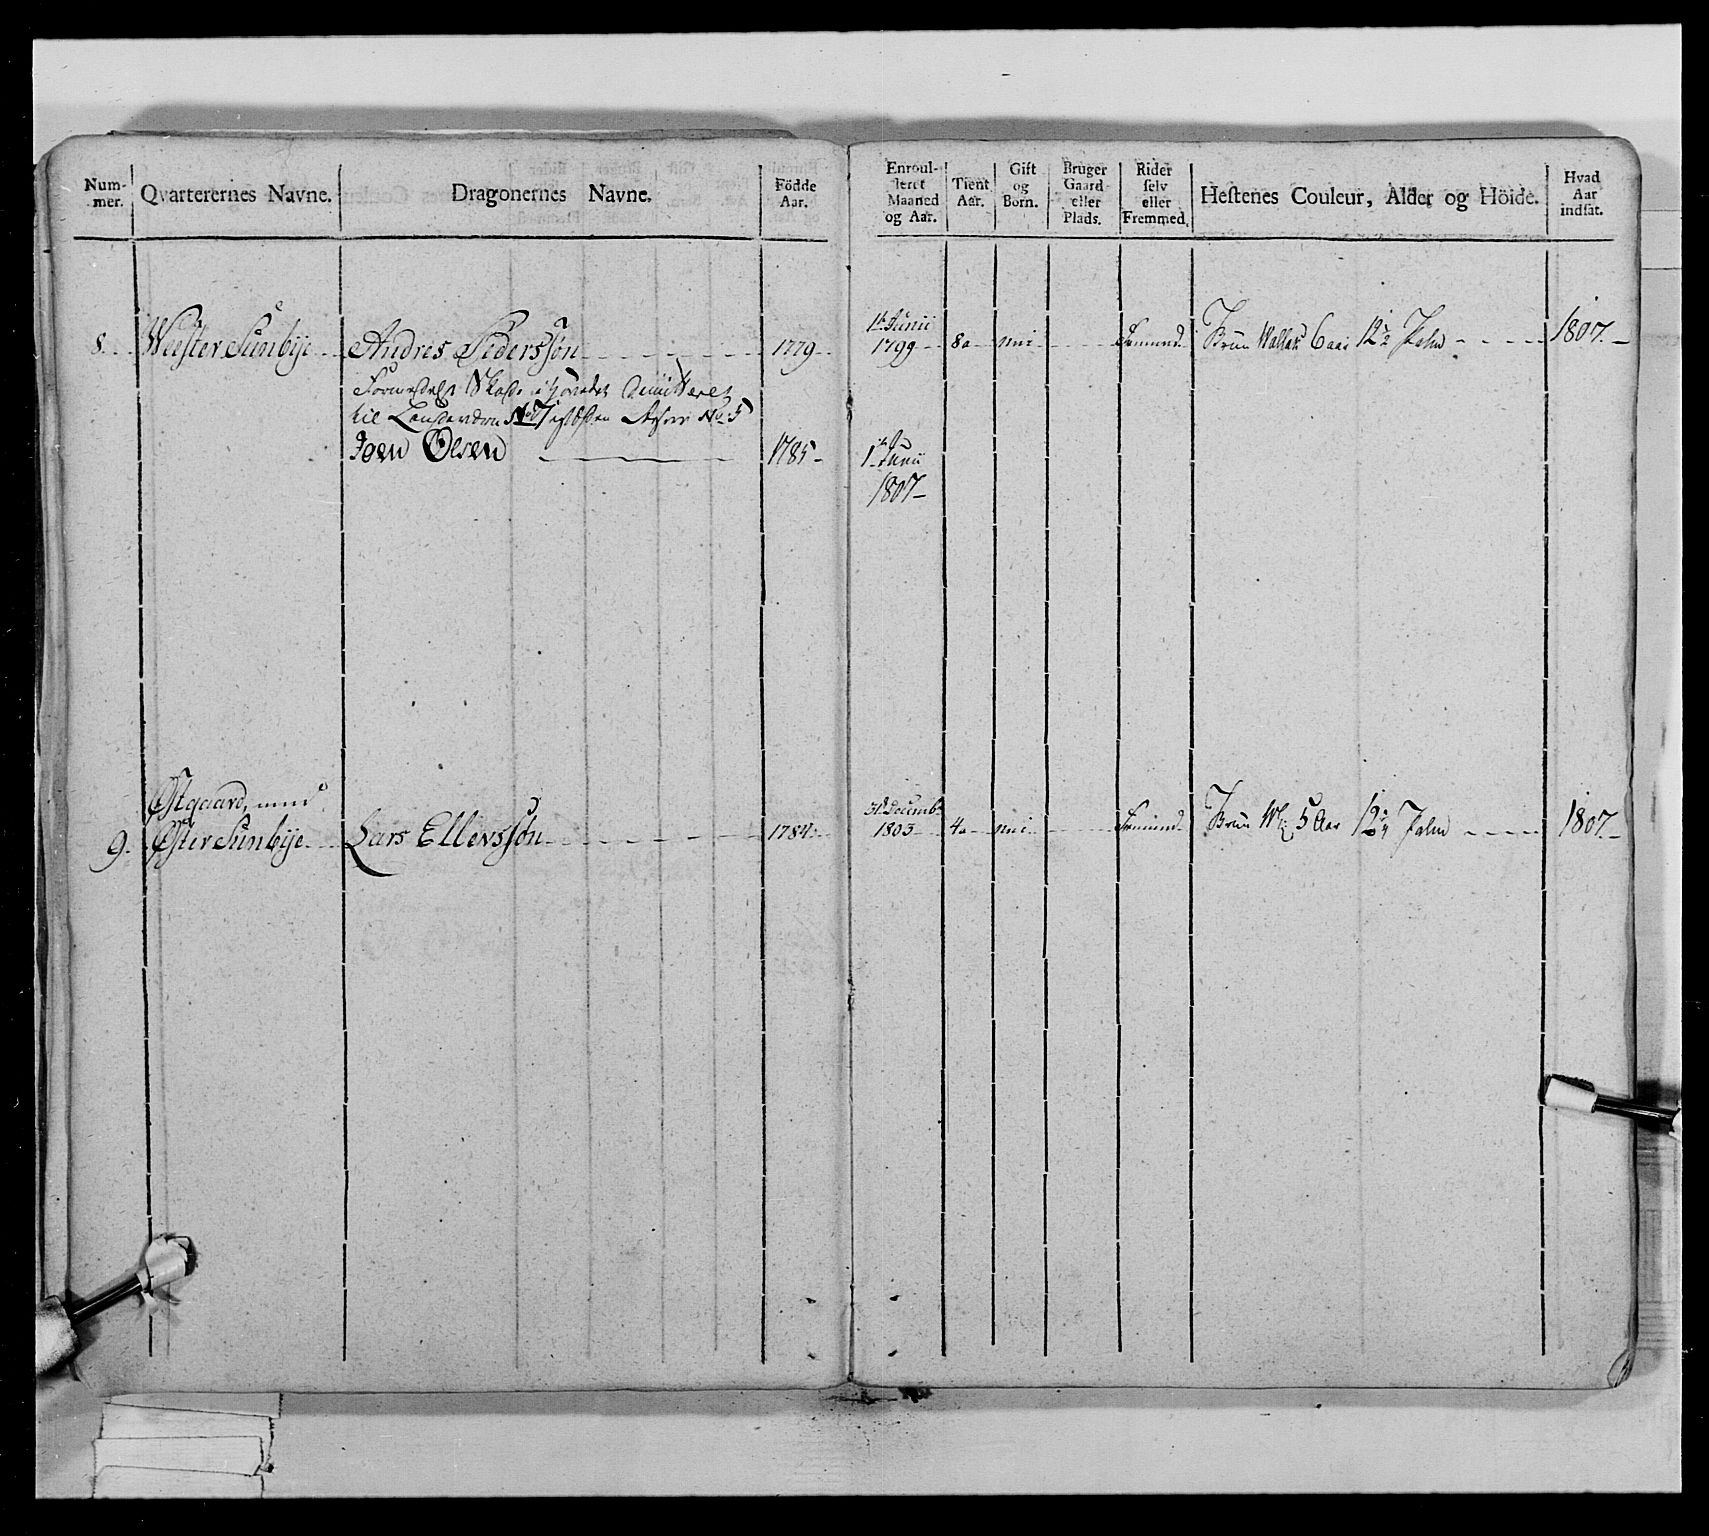 Num-
mer.
Qvarterernes Navne.
Dragonernes Navne.
Födde
Aar.
Enroul-
leret
Maaned
og Aar.
Tient
Aar.
Gift
og
Born.
Bruger
Gaard
eller
Plads.
Rider
selv
eller
Fremmed.
Hestenes Couleur, Alder og Höide.
Hvad
Aar
indsat.
8. Weester Sunbÿe Andres Pederssøn 1779
1t Junii
1799 8 nei Fremmed Bruun Wallak 6 aar 12 1/2 Palm 1807.
til No 7 No 5
Joen Olsen 1785
1t Junii
1807
Østgaard, med
9. Øster Sunbÿe Lars Ellevssøn 1784
31t Decemb
1803 4 nei Fremmed Bruun Wl: 5 Aar 12 3/4 Palm 1807